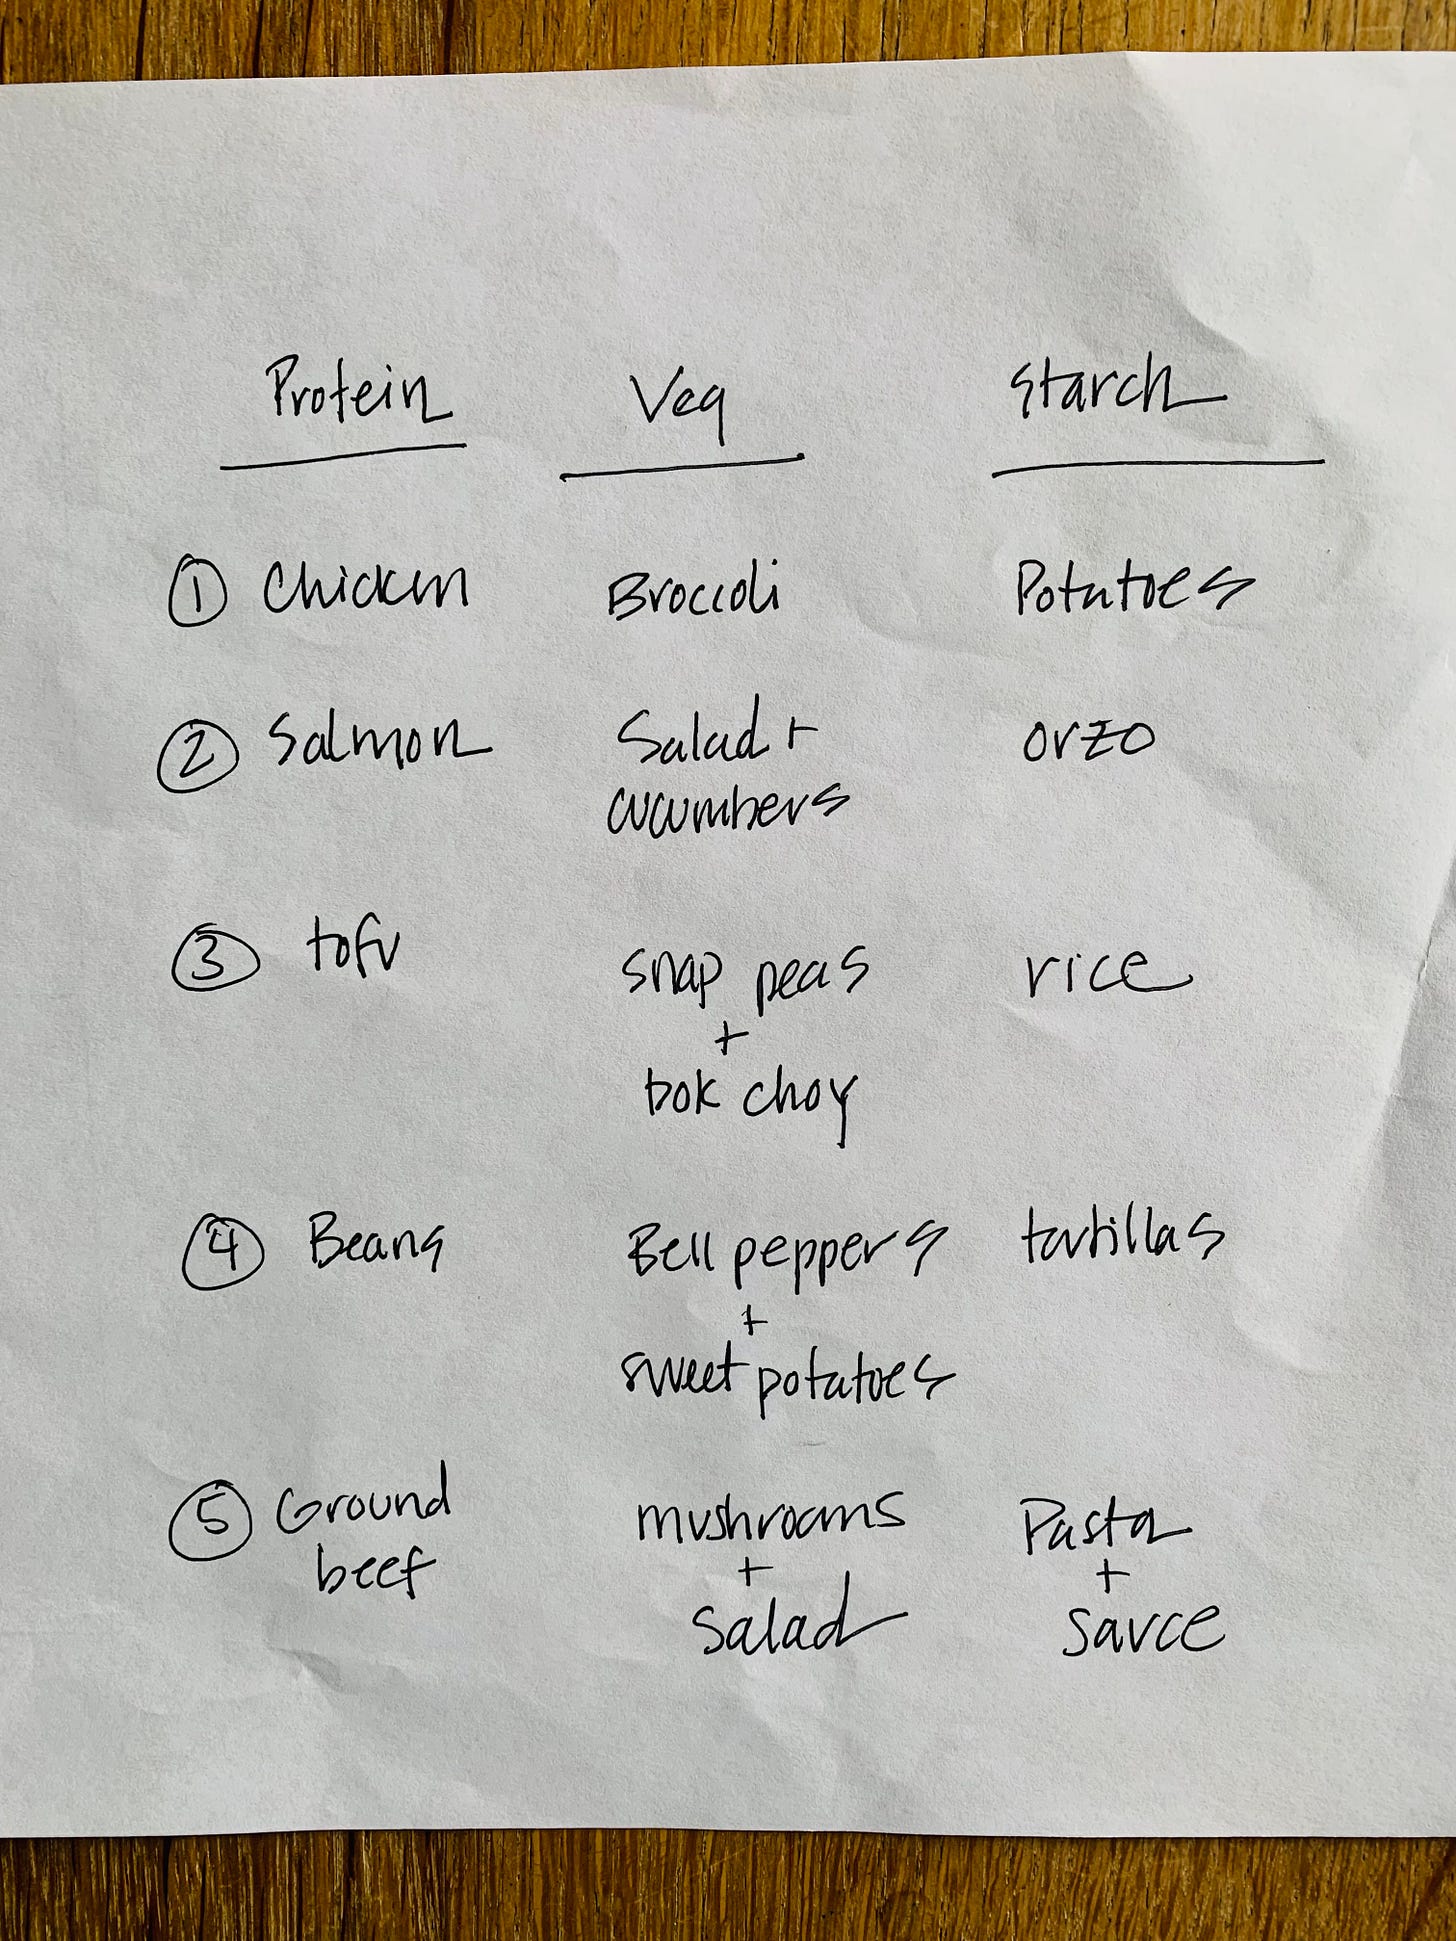 Protein Veg Starch
① Chicken Broccoli Potatoes
② Salmon Salad + orzo
cucumbers
③ tofu snap peas rice
+
bok choy
④ Beans Bell peppers tortillas
+
sweet potatoes
⑤ Ground mushrooms Pasta
beef + +
salad sauce